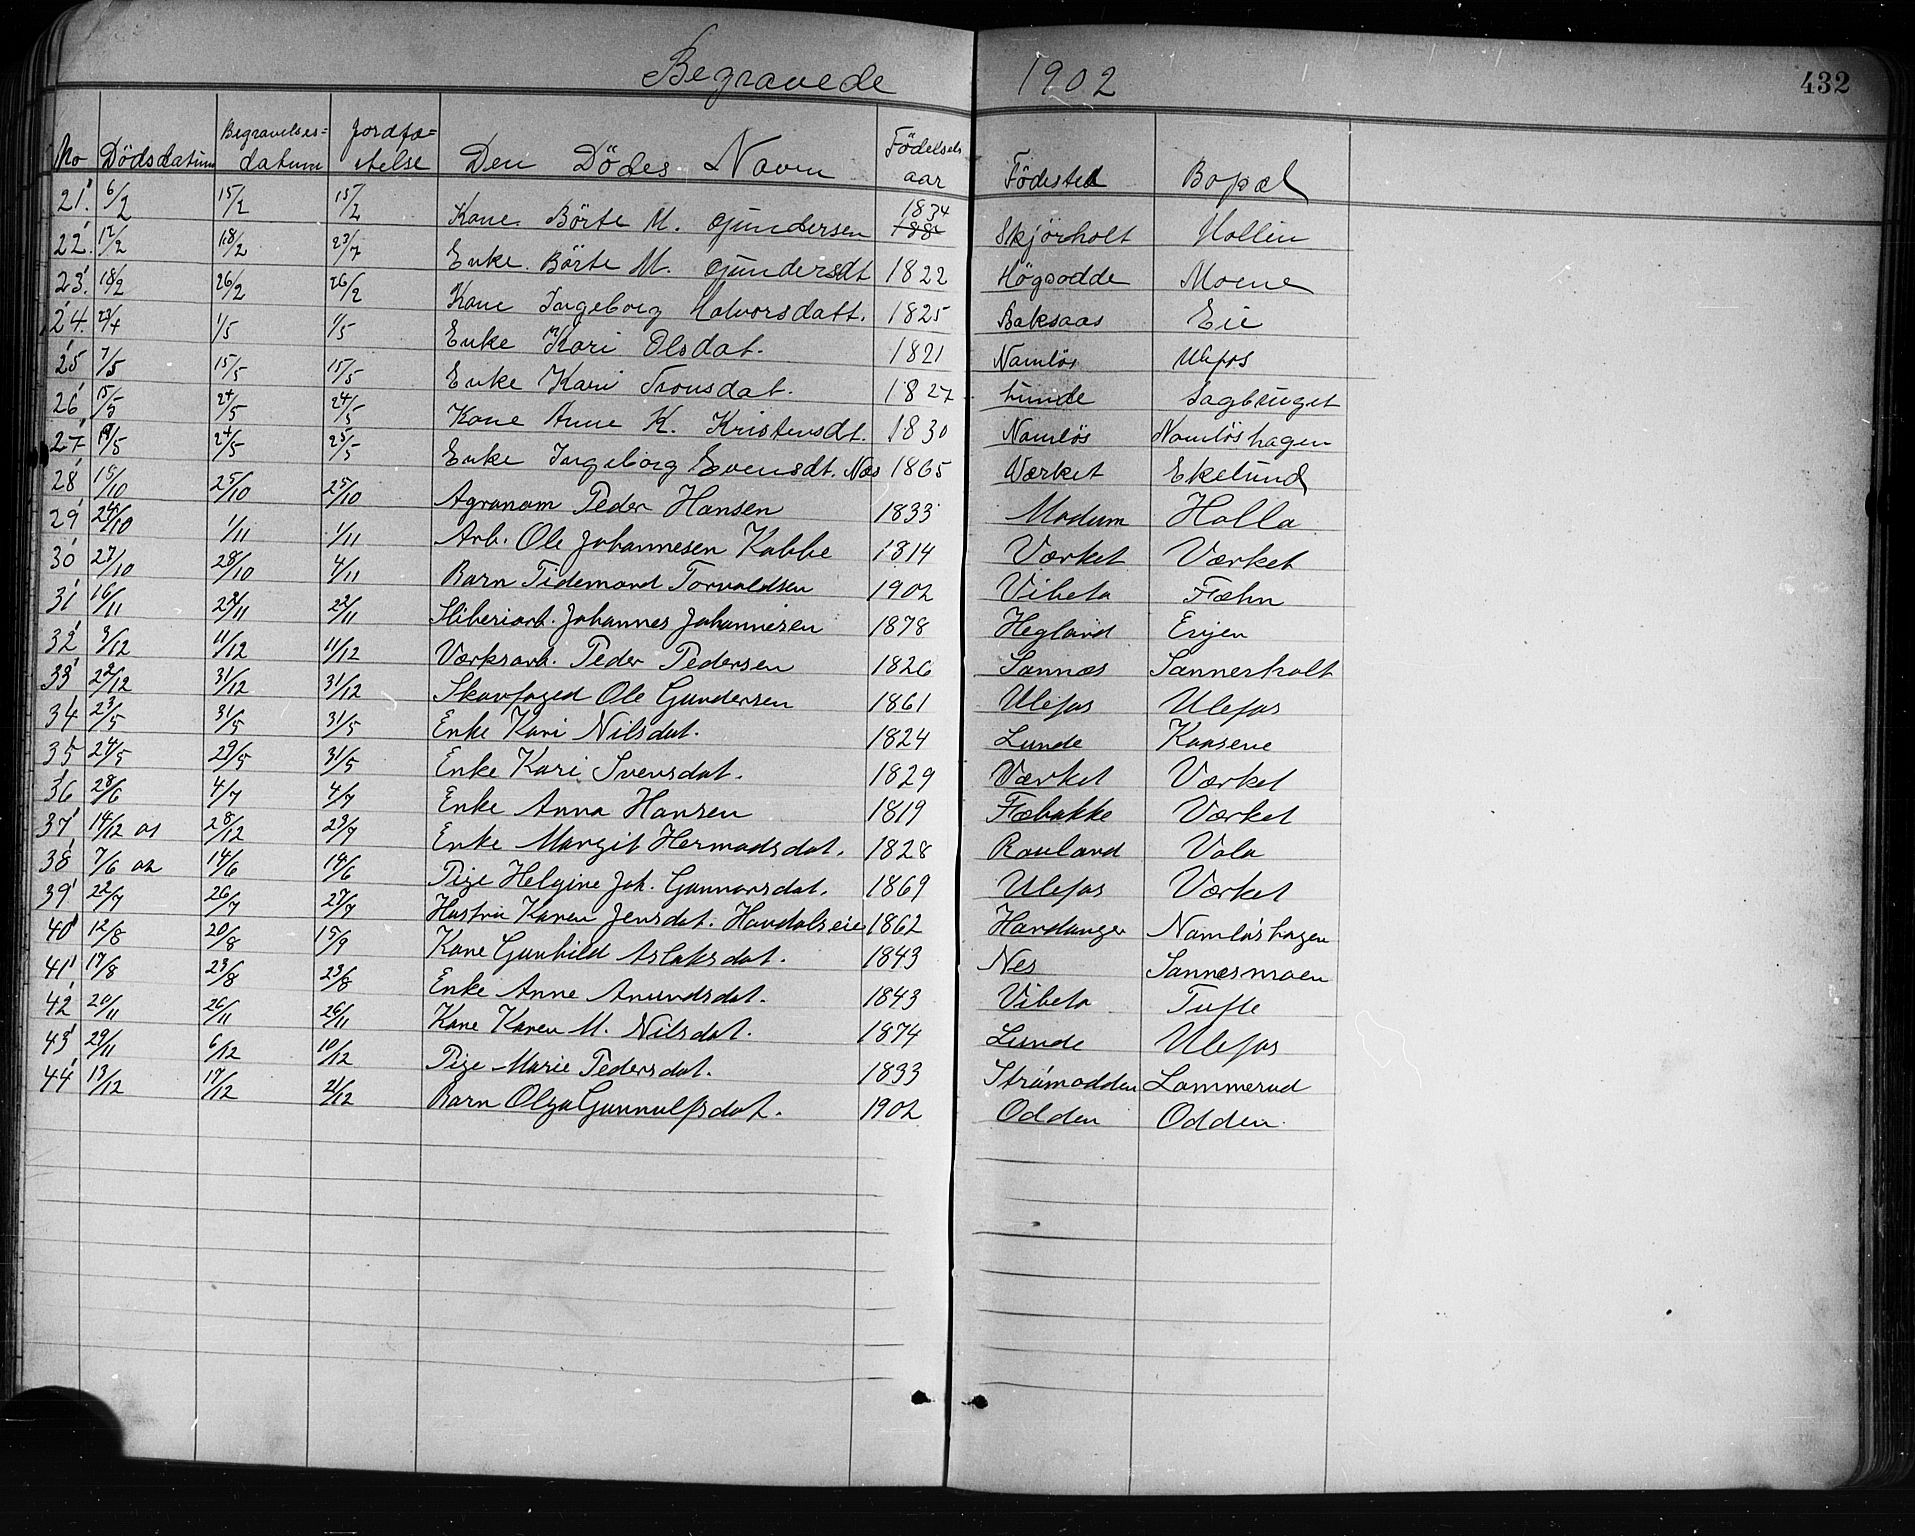 Begravede 1902 432
No Dödsdatum Begravelses= datum Jordfæ= stelse Den Dödes Navn Födsels aar Födested Bopæl
21. 6/2 15/2 15/2 Kone Börte M. Gundersen 1834 Skjörholt Hollin
22. 12/2 18/2 23/7 Enke. Börte M. Gundersdt 1822 Högsodde Moene
23. 18/2 26/2 26/2 Kone Ingeborg Halvorsdatt. 1825 Baksaas Eie
24. 23/4 1/5 1/5 Enke Kari Olsdat. 1821 Namlös Ulefos
25 7/5 15/5 15/5 Enke Kari Tronsdat. 1827 Lunde Sagbruget
26 15/5 24/5 24/5 Kone Anne K. Kristensdt. 1830 Namlös Namlöshagen
27 19/5 24/5 25/5 Enke Ingeborg Evensdt. Næs 1865 Værket Ekelund
28 15/10 25/10 25/10 Agronom Peder Hansen 1833 Modum Holla
29 24/10 1/11 1/11 Arb. Ole Johannesen Kabbe 1814 Værket Værket
30 27/10 28/10 4/11 Barn Tidemand Torvaldsen 1902 Vibeto Fæhn
31 16/11 22/11 22/11 Sliberiarb. Johannes Johannesen 1878 Hegland Enjen
32 3/12 11/12 11/12 Værksarb. Peder Pedersen 1826 Sannæs Sannerholt
33 22/12 31/12 31/12 Skovfoged Ole Gundersen 1861 Ulefos Ulefos
34 23/5 31/5 31/5 Enke Kari Nilsdat. 1824 Lunde Kaasene
35 24/5 29/5 31/5 Enke Kari Svensdat. 1829 Værket Værket
36 28/6 4/7 4/7 Enke Anna Hansen 1819 Fæbakke Værket
37 14/12 01 28/12 23/7 Enke Margit Hermodsdat. 1828 Rauland Vala
38 7/6 02 14/6 14/6 Pige Helgine Joh. Gunnarsdat. 1869 Ulefos Værket
39 22/7 26/7 27/7 Hustru Karen Jensdat. Havdalseie 1862 Hardanger Namlöshagen
40 12/8 20/8 15/9 Kone Gunhild Aslaksdat. 1843 Nes Sannesmoen
41 17/8 23/8 23/8 Enke Anne Anundsdat. 1843 Vibeto Tufte
42 20/11 26/11 26/11 Kone Karen M. Nilsdat. 1874 Lunde Ulefos
43 29/11 6/12 10/12 Pige Marie Pedersdat. 1833 Strömodden Lammerud
44 13/12 17/12 21/12 Barn Olga Gunnulfsdat. 1902 Odden Odden.